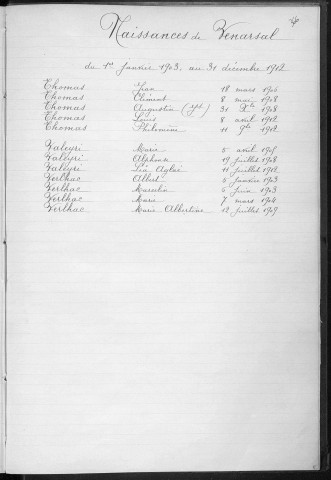 Naissances de Venarsal
du 1er Janvier 1903, au 31 décembre 1912
Thomas Jean 18 mars 1906
Thomas Clément 8 mai 1908
Thomas Augustin 31 Xbre 1908
Thomas Louis 8 avril 1912
Thomas Philomène 11 9bre 1912
Valeyri Marie 5 avril
Valeyri Alphonse 19 juillet 1908
Valeyri Léa Aglaé 11 juillet 1912
Verlhac Albert 5 janvier 1903
Verlhac Marcelin 6 juin 1903
Verlhac Marie 7 mars 1904
Verlhac Marie Albertine 12 juillet 1909